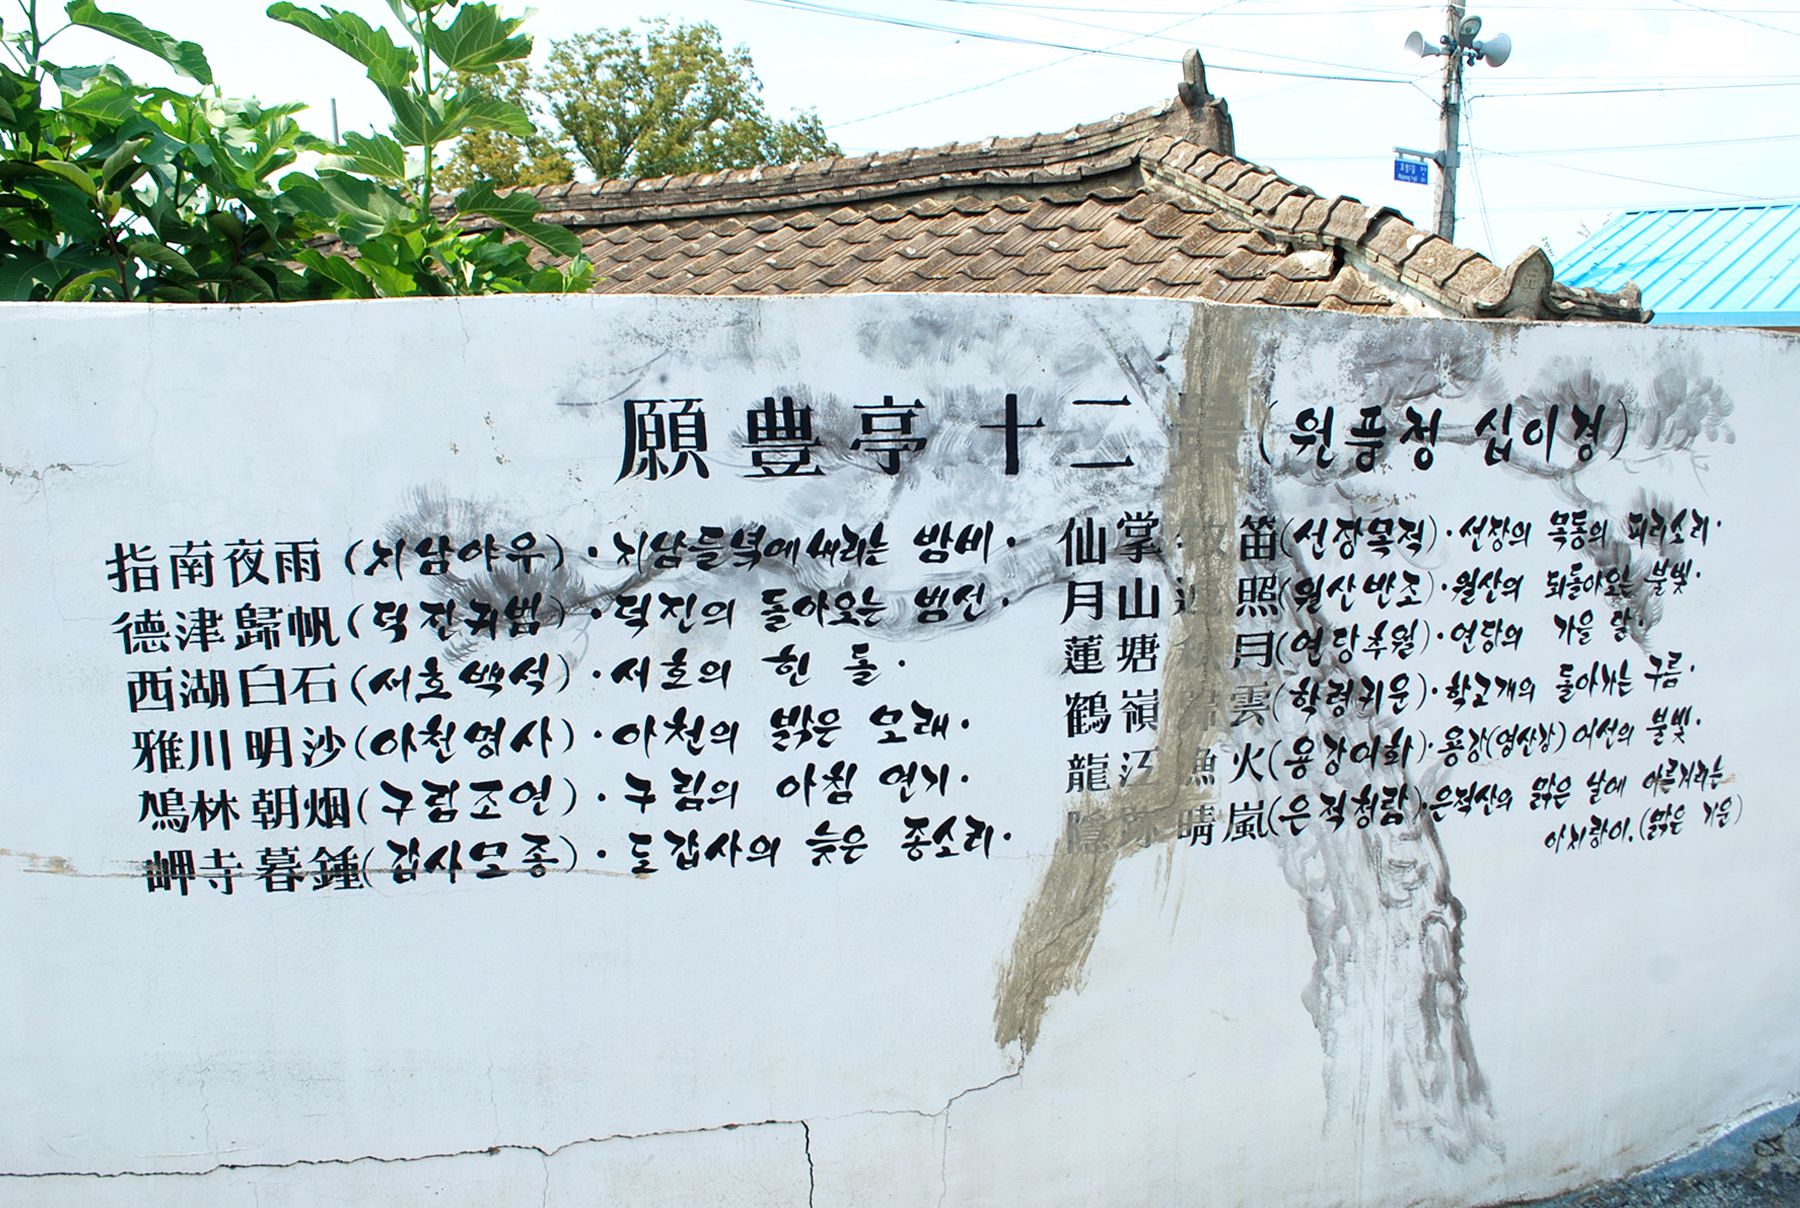 願豊亭十二 (원풍정 십이경)
指南夜雨 (지남야우)·지남들녘에 내리는 밤비·
德津歸帆(덕진귀범)·덕진의 돌아오는 범선·
西湖白石(서호백석)·서호의 흰 돌·
雅川明沙(아천명사)·아천의 밝은 모래·
鳩林朝烟(구림조연)·구림의 아침 연기·
岬寺暮鍾(갑사모종)·도갑사의 늦은 종소리·
仙掌牧笛(선장목적)·선장의 목동의 피리소리·
月山返照(월산반조)·월산의 되돌아오는 불빛·
蓮塘秋月(연당추월)·연당의 가을 달·
鶴嶺歸雲(학령귀운)·학고개의 돌아가는 구름·
龍江漁火(용강어화)·용강(영산강)어선의 불빛·
隱跡晴嵐(은적청람)·은적산의 맑은 날에 아른거리는
아지랑이.(맑은 기운)